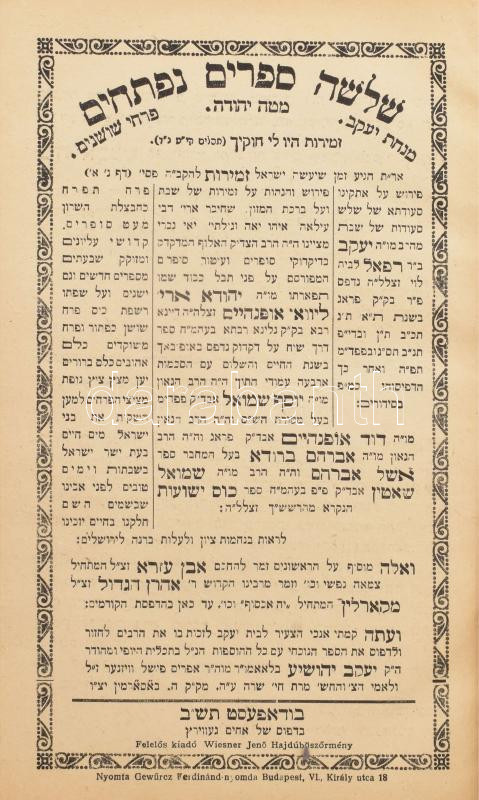 שלשה ספרים נפתחים
מנחת יעקב. מטה יהודה. פרחי שושנים.
זמירות היו לי חוקיך (תהלים קי״ט נ״ד).
אר״ת הגיע זמן שיעשה ישראל זמירות להקב״ה פסי׳ (דף ג׳ א׳)
פירוש על אתקינו
סעודתא של שלש
סעודות של שבת
מהרב מו״ה יעקב
ב״ר רפאל לבית
לוי זצללה״ה נדפס
פ״ר בק״ק פראג
בשנת
תפ״ה ואחר כך
הדפיסוהו
בסידורים
פירוש והגהות על זמירות של שבת
ועל ברכת המזון. שחיבר ארי׳ דבי
עילאה איהו יאה וגילתי׳ יאי נכרי
מציינו ה״ה הרב הצדיק האלוף המדקדק
בדיקדוקי סופרים ועיטור סופרים
המפורסם על פני תבל כבוד שמו
תפארתו מו״ה יהודא ארי׳
ליווא אופנהיים זצלה״ה דיינא
רבא בק״ק
דרך שיח על דקדוק נדפס באופיבאך
בשנת החיים והשלום עם הסכמות
ארבעה עמודי התוך ה״ה הרב הגאון
מו״ה יוסף שמואל אבד״ק פפד״מ
בעל מסורת הש״ס וה״ה הרב הגאון
מו״ה דוד אופנהיים אבד״ק פראג וה״ה הרב
הגאון מו״ה אברהם ברודא בעל המחבר ספר
אשל אברהם וה״ה הרב מו״ה שמואל
שאטין אבד״ק פ״פ בעהמ״ח ספר כוס ישועות
הנקרא מהרשש״ך זצללה״ה:
פרח תפרח
כחבצלת השרון
מעט סופרים.
קדושי עליונים
ומזוקק שבעתים
מספרים חדשים וגם
ישנים ועל שפתו
רשפת כיס פרח
שושן כפתור ופרח
משוקדים כלם
אהובים כלם ברורים
יען מצין ציץ נופת
הפרחים למען
בני
ישראל מים חיים
בעת ישר ישראל
בשבתות וימים
טובים לפני אבינו
שבשמים השם
חלקנו בחיים יזכינו
לראות בנחמות ציון ולעלות ברנה לירושלים:
ואלה מוסיף על הראשונים זמר להחכם אבן עזרא זצ״ל המתחיל
צמאה נפשי וכו׳ וזמר מרבינו הקדוש ר׳ אהרן הגדול זצ״ל
מקארלין המתחיל ״יה אכסוף״ וכו׳. עד כאן בהדפסת הקודמים:
ועתה קמתי אנכי הצעיר לבית יעקב לזכות בו את הרבים לחזור
ולדפוס את הספר הנוכחי עם כל ההוספות הנ״ל בתכלית היופי ומהודר
ה״ק יעקב יהושיע בלאאמו״ר מוה״ר אפרים פישל וויזנער ז״ל
ולאמי הצ׳ והחש׳ מרת חי׳ שרה ע״ה.
בודאפעסט תש״ב
בדפוס של אחים געווירץ
Felelős kiadó Wiesner Jenő Hajdúböszörmény
Nyomta Gewürcz Ferdinánd-nyomda Budapest, VI., Király utca 18
darabanth